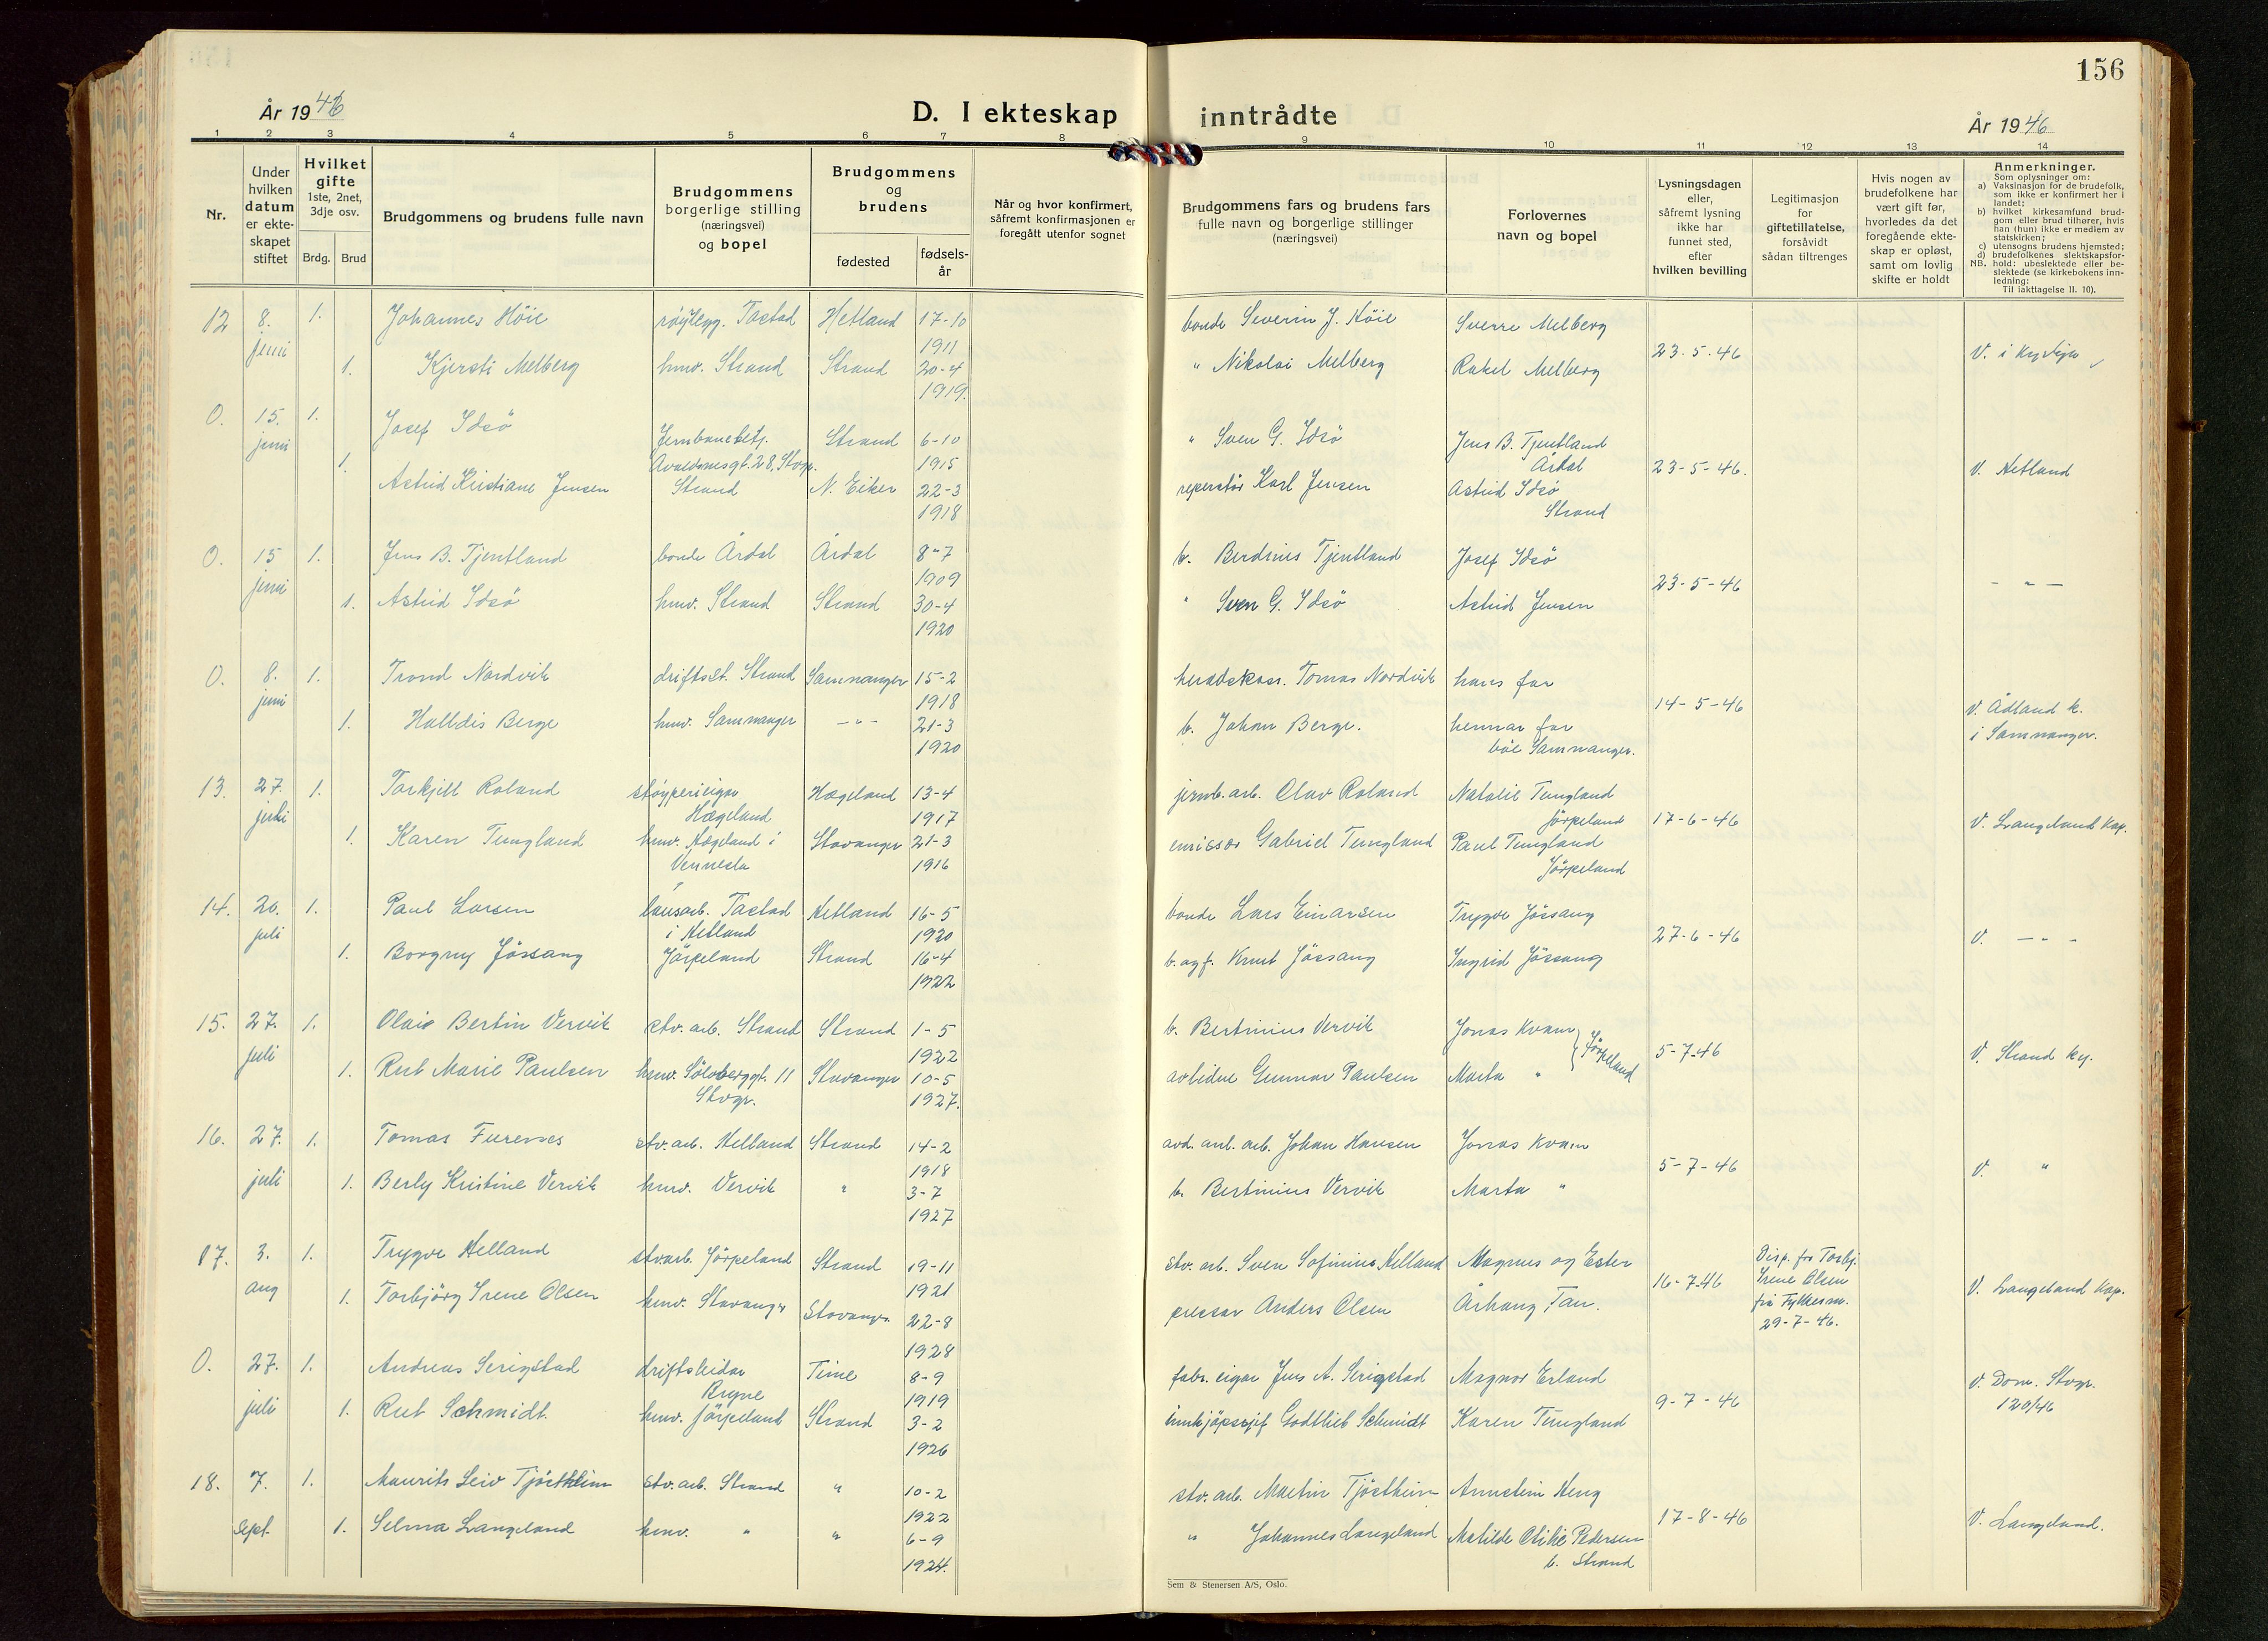 156
År 1946
D. I ekteskap inntrådte
År 1946
1 2 3 4 5 6 7 8 9 10 11 12 13 14
Nr.
Under hvilken datum er ekte-skapet stiftet
Hvilket gifte 1ste, 2net, 3dje osv.
Brdg. Brud
Brudgommens og brudens fulle navn
Brudgommens borgerlige stilling (næringsvei) og bopel
Brudgommens og brudens
fødested
fødsels-år
Når og hvor konfirmert, såfremt konfirmasjonen er foregått utenfor sognet
Brudgommens fars og brudens fars fulle navn og borgerlige stillinger (næringsvei)
Forlovernes navn og bopel
Lysningsdagen eller, såfremt lysning ikke har funnet sted, efter hvilken bevilling
Legitimasjon for giftetillatelse, forsåvidt sådan tiltrenges
Hvis nogen av brudefolkene har vært gift før, hvorledes da det foregående ekte-skap er opløst, samt om lovlig skifte er holdt
Anmerkninger.
Som oplysninger om:
a) Vaksinasjon for de brudefolk, som ikke er konfirmert her i landet;
b) hvilket kirkesamfund brud-gom eller brud tilhører, hvis han (hun) ikke er medlem av statskirken;
c) utensogns brudens hjemsted;
d) brudefolkenes slektskapsfor-
NB. hold: ubeslektede eller be-slektede (se kirkebokens inn-ledning:
Til iakttagelse II. 10).
12 8. juni 1. Johannes Höie Tastad Hetland 17-10 1911 bonde Severin J. Höie Sverre Melberg
1. Kjersti Melberg hmv. Strand Strand 20-4 1919. " Nikolai Melberg Rakel Melberg 23.5.46 V. i
0. 15. juni 1. Josef Idsö Jernbanebetj. Avaldsnesgt. 28, Stvgr. Strand 6-10 1915 " Sven G. Idsö Jens B. Tjentland Årdal
1. Astrid Kristiane Jensen Strand N. Eiker 22-3 1918 reperatör Karl Jensen Astrid Idsö Strand 23-5-46. V. Hetland
0. 15 juni 1. Jens B. Tjentland bonde Årdal Årdal 8-7 1909 b. Berdines Tjentland Josef Idsö
1. Astrid Idsö hmv. Strand Strand 30-4 1920 " Sven G. Idsö Astrid Jensen 23-5-46 - " -
0. 8. juni 1. Trond Nordvik driftsst. Strand Samnanger 15-2 1918 heradskass. Tomas Nordvik hans far
1. Halldis Berge hmv. Samnanger - " - 21-3 1920 b. Johan Berge. hennar far båe Samnanger. 14-5-46 V. Ådland k. i Samnanger.
13. 27. juli 1. Torkjell Roland støyperieigar Hægeland Hægeland 13-4 1917 jernb. arb. Olav Roland Natalie Tungland Jörpeland
1. Karen Tungland hmv. Hægeland i Vennesla Stavanger 21-3 1916 Gabriel Tungland Paul Tungland Jörpeland 17-6-46 V. Langeland Kap.
14. 20. juli 1. Paul Larsen Tastad i Hetland Hetland 16-5 1920 bonde Lars Einarsen Trygve Jössang
1. Borgny Jössang Jörpeland Strand 16-4 1922 b. og f. Knut Jössang Ingrid Jössang 27-6-46 V. - " -
15. 27. juli 1. Olaic Bertin Vervik stv. arb. Strand Strand 1-5 1922 b. Bertinius Vervik Jonas Kvam
1. Rut Marie Paulsen hmv. Sölvberggt. 11 Stvgr. Stavanger 10-5 1927. arbeidar Gunnar Paulsen Marta " Jörpeland 5-7-46 V. Strand ky.
16. 27. juli 1. Tomas Furenes stv. arb. Helland Strand 14-2 1918 Johan Hansen Jonas Kvam
1. Berly Kristine Vervik hmv. Vervik " 3-7 1927 b. Bertinius Vervik Marta " 5-7-46 V. "
17. 3. aug 1. Trygve Helland stv.arb. Jörpeland Strand 19-11 1921 stv. arb. Sven Sofinius Helland Magnus og Ester Disp. for Torbj. Irene Olsen frå Fylkesm. 29-7-46.
1. Torbjörg Irene Olsen hmv. Stavanger Stavanger 22-8 1928 pressar Anders Olsen Århaug, Tau. 16-7-46 V. Langeland Kap.
0. 27. juli 1. Andreas Serigstad driftsleidar Bryne Time 8-9 1919 fabr. eigar Jens A. Serigstad Magnar Erland
1. Rut Schmidt. hmv. Jörpeland Strand 3-2 1926 innkjöpssjef Godtlieb Schmidt Karen Tungland 9-7-46 V. Dom. Stvgr. 120/46
18. 7. sept 1. Maurits Leiv Tjöstheim stv. arb. Strand " 10-2 1922 stv. arb. Martin Tjöstheim Annstein Heng
1. Selma Langeland hmv. " " 6-9 1924. " Johannes Langeland Matilde Otilie Pedersen b. Strand 17-8-46 V. Langeland.
Sem & Stenersen A/S, Oslo.